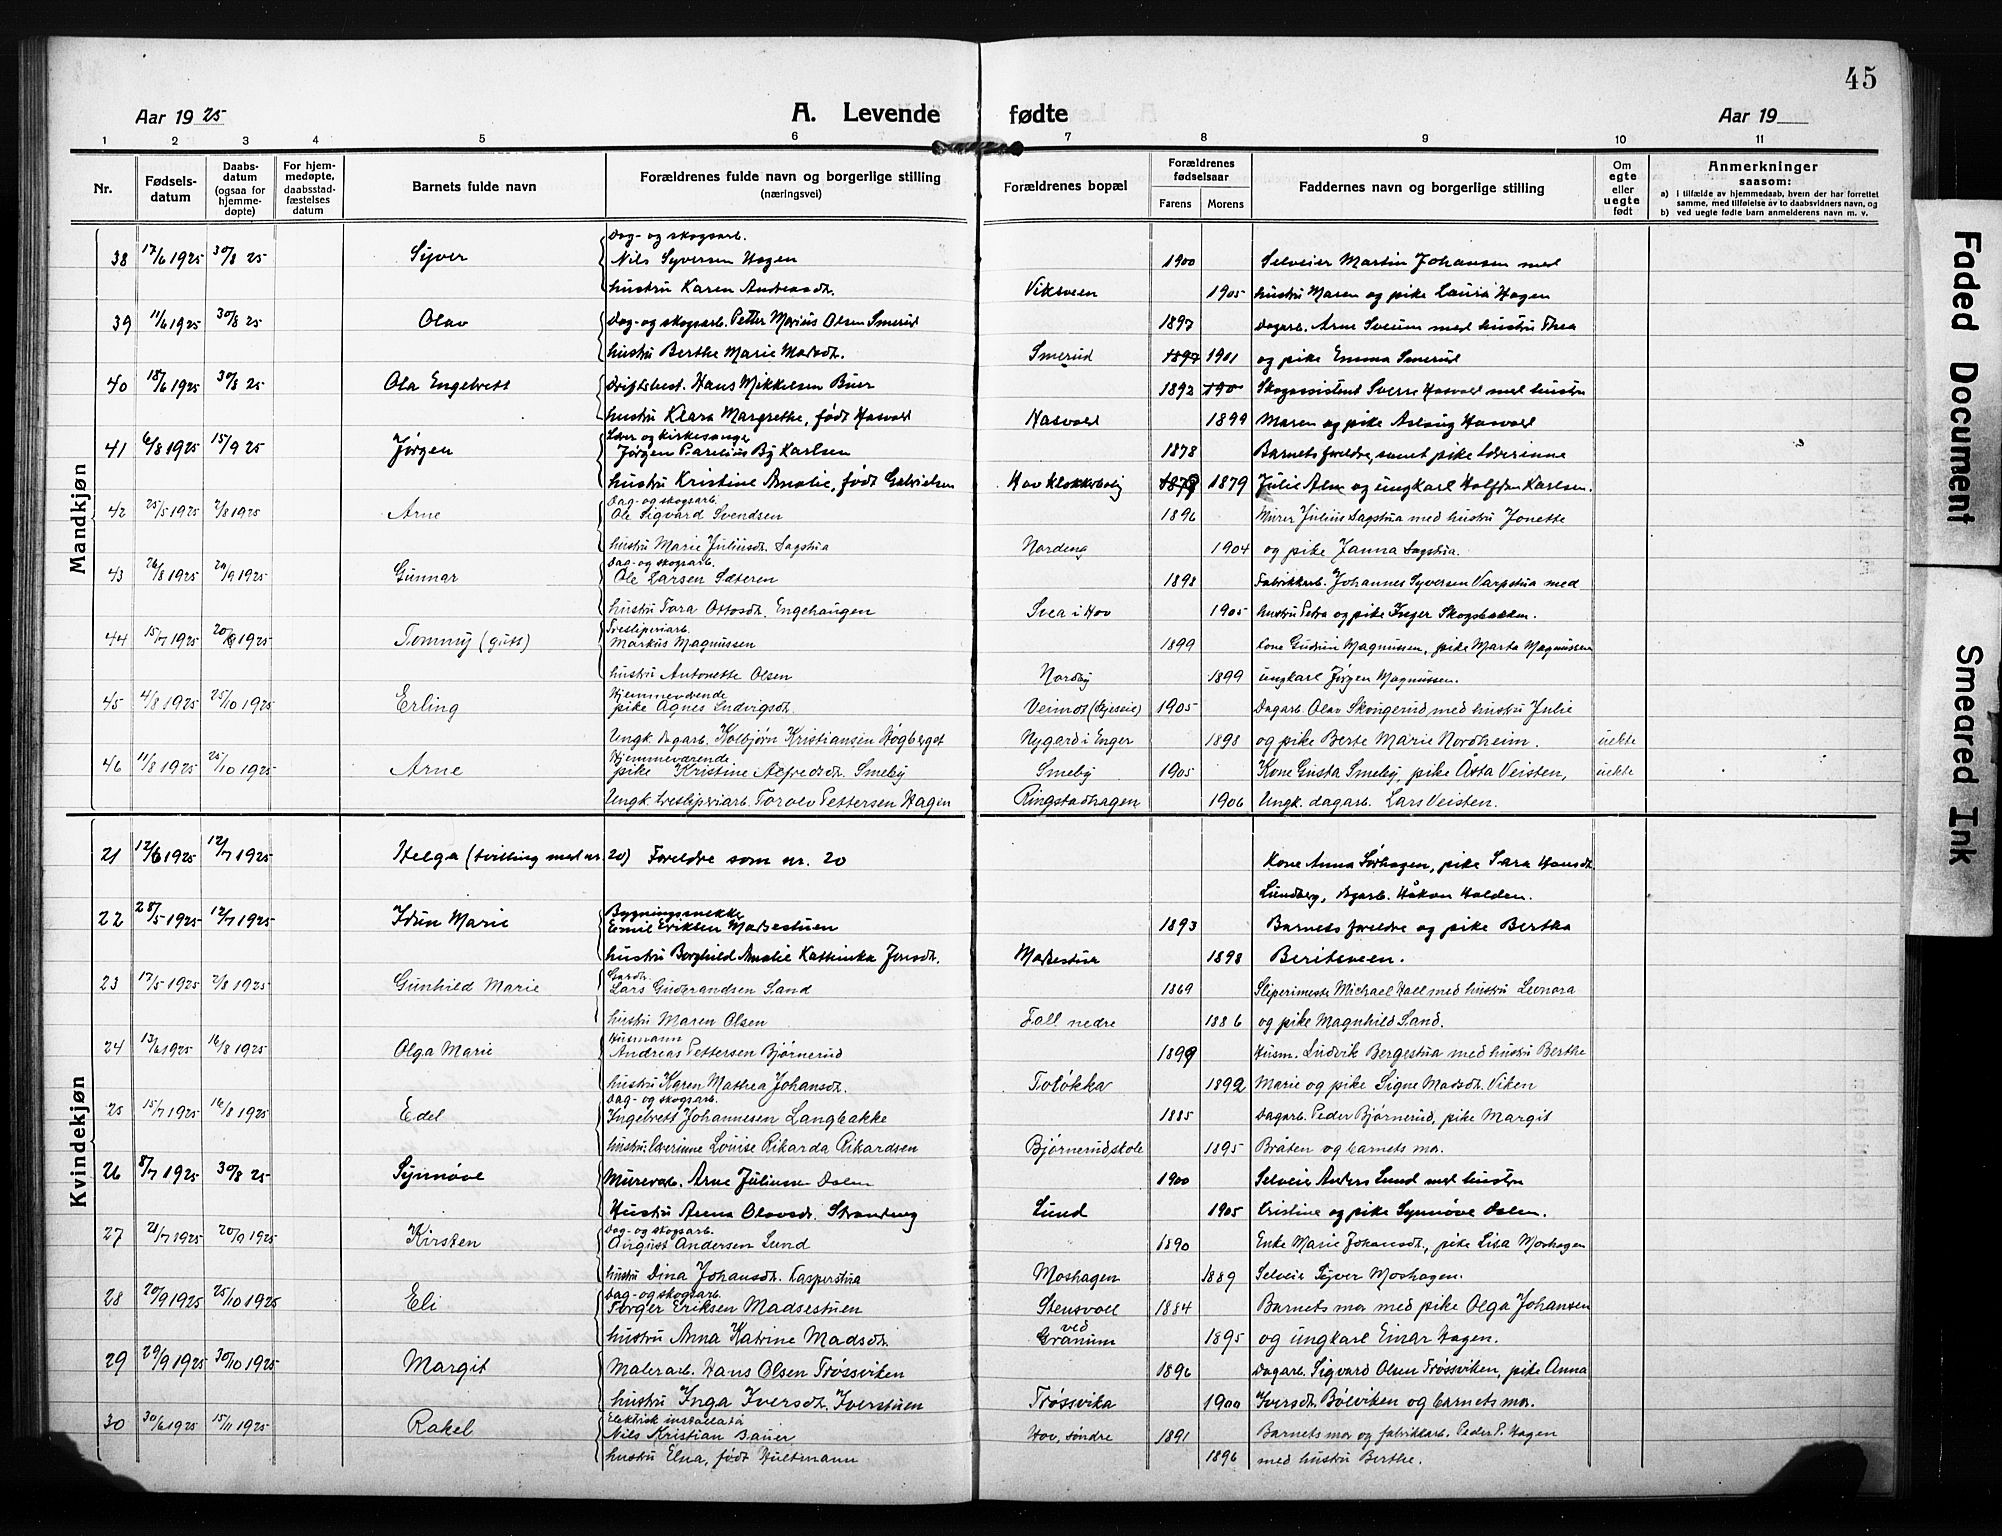 45
Aar 1925 A. Levende fødte Aar 19
1 2 3 4 5 6 7 8 9 10 11
Nr. Fødsels-datum Daabs-datum (ogsaa for hjemme-døpte) For hjem-medøpte, daabsstad-fæstelses datum Barnets fulde navn Forældrenes fulde navn og borgerlige stilling (næringsvei) Forældrenes bopæl Forældrenes fødselsaar Farens Morens Faddernes navn og borgerlige stilling Om egte eller uegte født Anmerkninger saasom:
a) i tilfælde av hjemmedaab, hvem der har forrettet samme, med tilføielse av to daabsvidners navn, og
b) ved uegte fødte barn anmelderens navn m. v.
Mandkjøn
Dag- og skogsarb.
38 17/6 1925 30/8 25 Syver Nils Syversen Hagen 1900 Selveier Martin Johansen med
hustru Karen Andreasdt. Viksveen 1905 hustru Maren og pike Laura Hagen
39 11/6 1925 30/8 25 Olav Dag- og skogsarb. Petter Marius Olsen Smerud 1897 Dagarb. Arne Sveum med hustru Thea
hustru Berthe Marie Madsdt. Smerud 1897 1901 og pike Emma Smerud
40 18/6 1925 30/8 25 Ola Engebrett Driftsbest. Hans Mikkelsen Buer 1892 190 Skogassistent Sverre Hasvold med hustru
hustru Klara Margrethe, født Hasvold Hasvold 1899 Maren og pike Aslaug Hasvold
Lærer og kirkesanger
41 6/8 1925 15/9 25 Jørgen Jørgen Parelius By Karlsen 1878 Barnets foreldre, samt pike lærerinne
hustru Kristine Amalie, født Gabrielsen Hov klokkerbolig 1879 1879 Julie Alm og ungkarl Halfdan Karlsen.
Dag- og skogsarb.
42 25/5 1925 2/8 1925 Arne Ole Sigvard Svendsen 1896 Murer Julius Sagstua med hustru Jonette
hustru Marie Juliusdt. Sagstua Nordeng 1904 og pike Janna Sagstua.
Dag- og skogsarb.
43 26/8 1925 20/9 1925 Gunnar Ole Larsen Sæteren 1898 Fabrikkarb. Johannes Syversen Varpstua med
hustru Tora Ottosdt. Engehaugen Svea i Hov 1905 hustru Petra og pike Inger Skogsbakken.
Tresliperiarb.
44 15/7 1925 20/9 1925 Tommy (gutt) Markus Magnussen 1899 Kone Gudrun Magnussen, pike Marta Magnussen
hustru Antonette Olsen Nordby 1899 ungkarl Jørgen Magnussen.
Hjemmeværende
45 4/8 1925 25/10 1925 Erling pike Agnes Ludvigsdt. Vermos 1905 Dagarb. Olav Skougerud med hustru Julie
Ungk. dagarb. Kolbjørn Kristiansen Høgberget Nygard i Enger 1898 og pike Berte Marie Nordheim. uekte
Hjemmeværende
46 11/8 1925 25/10 1925 Arne pike Kristine Alfredsdt. Smeby Smeby 1905 Kone Gusta Smeby, pike Åsta Veisten, uekte
Ungk. tresliperiarb. Torolv Pettersen Hagen Ringstadhagen 1906 Ungk. dagarb. Lars Veisten.
Kvindekjøn
21 12/6 1925 12/7 1925 Helga (tvilling med nr. 20) Foreldre som nr. 20 Kone Anna Sørhagen, pike Sara Hansdt.
Lundberg, dagarb. Håkon Holden.
Bygningssnekker
22 28/5 1925 12/7 1925 Idun Marie Emil Eriksen Madsestuen 1893 Barnets foreldre og pike Bertha
hustru Borghild Amalie Kathinka Jensdt. Madsestua 1898 Beritsveen.
Gardbr.
23 17/5 1925 2/8 1925 Gunhild Marie Lars Gudbrandsen Sand 1869 Slipermester Michael Hall med hustru Leonora
hustru Maren Olsen Fall nedre 1886 og pike Magnhild Sand.
Husmann
24 13/6 1925 16/8 1925 Olga Marie Andreas Pettersen Bjørnerud 1899 Husm. Ludvik Bergestua med hustru Berthe
hustru Karen Mathea Johansdt. Toløkka 1892 Marie og pike Signe Madsdt. Viken
Dag- og skogsarb.
25 15/7 1925 16/8 1925 Edel Ingebrett Johannesen Langbakke 1885 Dagarb. Peder Bjørnerud, pike Margit
hustru lærerinne Louise Rikarda Rikardsen Bjørnerud skole 1895 Bråten og barnets mor.
26 8/7 1925 30/8 25 Synnøve Murerarb. Arne Juliussen Dalen 1900 Selveier Anders Lund med hustru
Hustru Anna Olavsdt. Strandeng Lund 1905 Kristine og pike Synnøve Dalen.
Dag- og skogsarb.
27 21/7 1925 20/9 1925 Kirsten August Andersen Lund 1890 Enke Marie Johansdt., pike Lisa Moshagen
hustru Dina Johansdt. Kasperstua Moshagen 1889 Selveier Syver Moshagen.
Dag- og skogsarb.
28 20/9 1925 25/10 1925 Eli Torger Eriksen Madsestuen Stensvoll 1884 Barnets mor med pike Olga Johansen
hustru Anna Katrine Madsdt. ved Granum 1895 og ungkarl Einar Hagen.
29 29/9 1925 30/10 1925 Margit Malerarb. Hans Olsen Trøssviken 1896 Dagarb. Sigvard Olsen Trøssviken, pike Anna
hustru Inga Iversdt. Iverstuen Trøssvika 1900 Iversdt. Bølviken og barnets mor.
Elektrisk installatør
30 30/6 1925 15/11 1925 Rakel Nils Kristian Bauer Hov, søndre 1891 Barnets mor og fabrikkarb. Peder P. Hagen
hustru Elna, født Hultmann 1896 med hustru Berthe.
Faded Document
Smeared Ink